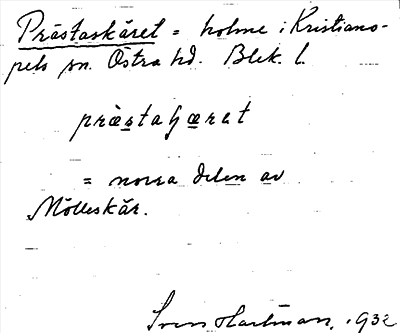 Prästaskäret = holme i Kristiano-
pels sn. Östra hd. Blek. l.
= norra delen av
Mölleskär.
Sven Hartman, 1932